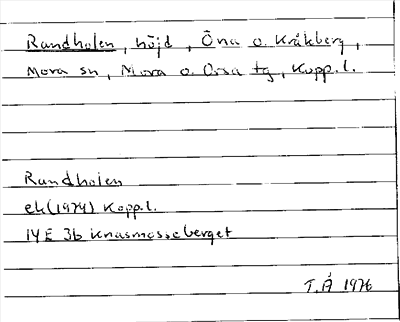 Randholen, höjd, Öna o. Kråkberg,
Mora sn, Mora o. Orsa tg, Kopp.l.
Randholen
ek(1974) Kopp.l.
14E 3b Knasmosseberget
T.Å 1976